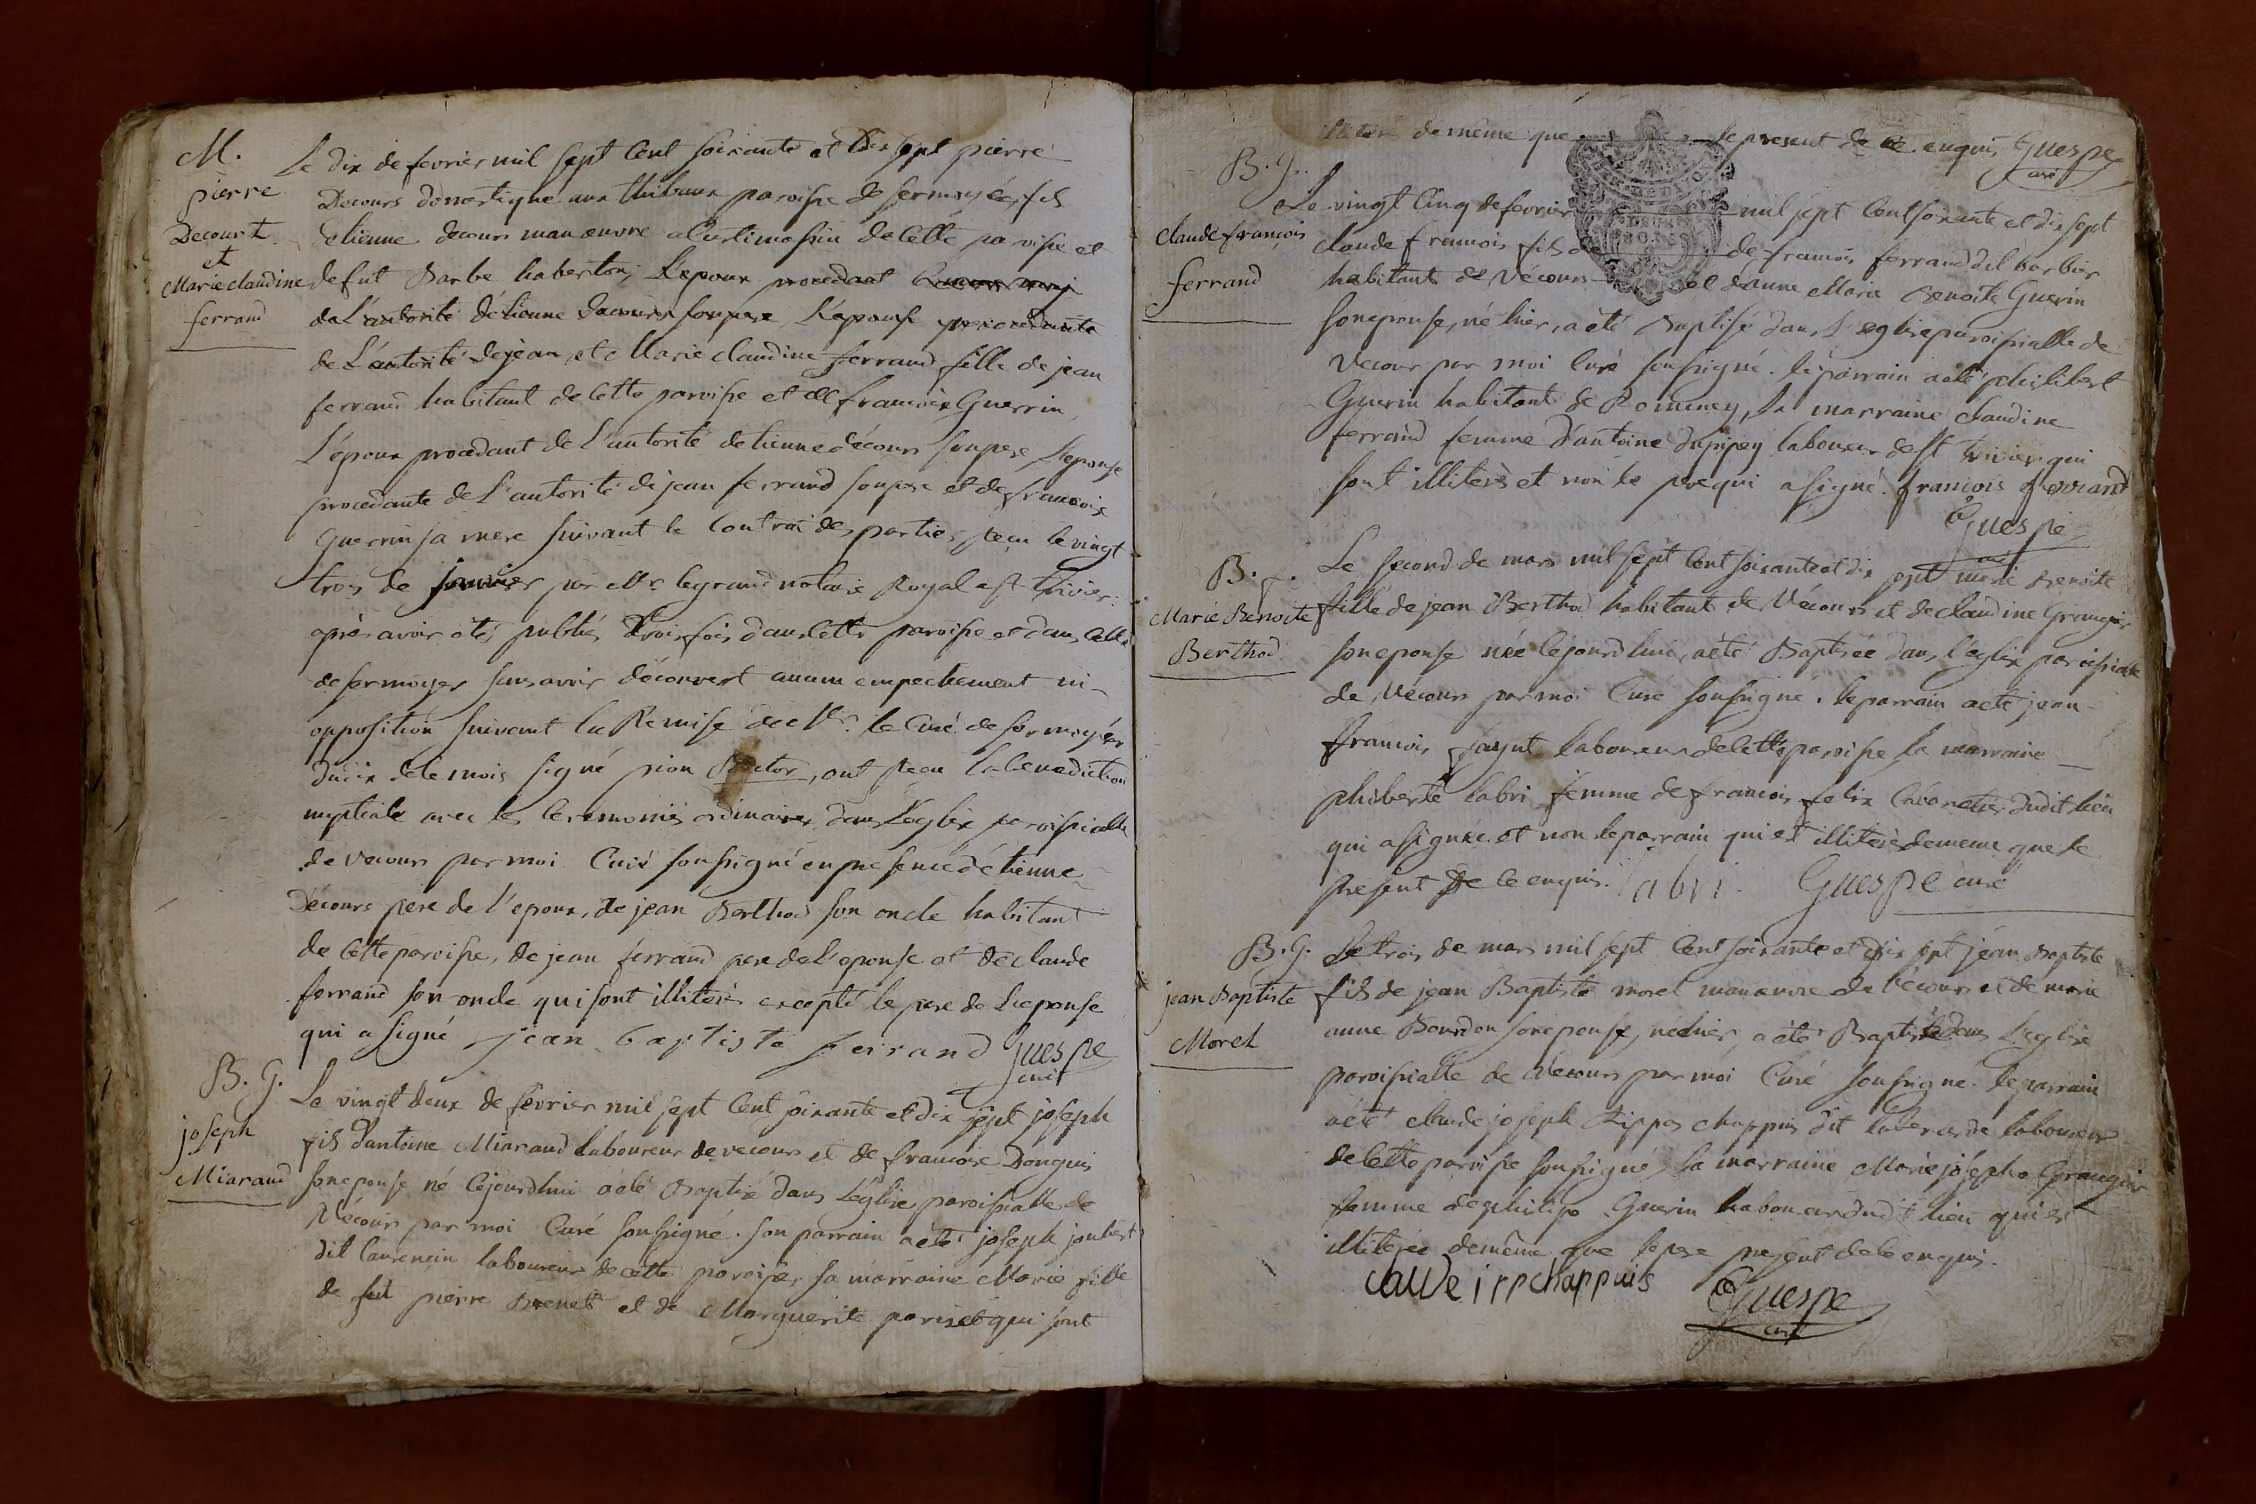 M.
pierre
Decourt
et
Marie claudine
ferrand
Le dix de fevrier mil sept Cent soixante et dix sept pierre
Decours domestique aux thibaux paroisse de sermoyer, fils
detienne decours manœuvre de Cette paroisse et
defut Barbe haberton, Lepoux procedant
de L'autorité détienne Decours son pere L'épouse procedante
de L'autorité dejean, et Marie claudine ferrand fille de jean
ferrand habitant de Cette paroisse et de francoise Guerrin,
L'époux procedant de L'autorité detienne décours son pere, Lepouse
procedante de L'autorité de jean ferrand son pere et de francoise
Guerrin sa mere suivant le Contrat des parties, reçu le vingt
trois de janvier par Me legrand notaire Royal a st trivier.
après avoir été publiés trois fois dans Cette paroisse et dans Celle
de sermoyer sans avoir découvert aucun empechement ni
opposition suivant la Remise de Mr. le Curé de sermoyer
du dix de Ce mois signé pion , ont reçu la benediction
nuptiale avec les Ceremonies ordinaires dans L'eglise paroissialle
de vecours par moi Curé soussigné en presence détienne
Décours pere de l'epoux, de jean Berthod son oncle habitant
de Cette paroisse, de jean ferrand pere de L'epouse et de claude
ferrand son oncle qui sont illiterés excepté le pere de L'epouse
qui a signé jean baptiste ferrand Guespe
curé
B. G.
joseph
Miarand
Le vingt deux de fevrier mil sept Cent soixante et dix sept joseph
fils d'antoine Miarand laboureur de vecours et de francoise Donguis
son epouse né Cejourdhui a été Baptisé dans L'église paroissialle de
Vécours par moi Curé soussigné. son parrain a été joseph joubert
dit laurencin laboureur de cette paroisse, sa marraine Marie fille
de fut pierre Brenet et de Marguerite pariset qui sont
illiterés de même que le present de ce enquis Guespe
curé
B. G.
claude françois
ferrand
Le vingt Cinq de fevrier mil sept Cent soixante et dix sept
claude francois fils de francois ferrand dit barbier
habitant de Vécours et d'anne Marie Benoite Guerin
son epouse, né hier, a été Baptisé dans L'eglise paroissialle de
Vecour par moi Curé soussigné. le parrain a été philibert
Guerin habitant de Romenay, la marraine claudine
ferrand femme d'antoine dupipey laboureur de St trivier qui
sont illiterés et non le pere qui a signé. francois ferrand
Guespe
curé
B. G.
Marie Benoite
Berthod
Le second de mars mil sept Cent soixante et dix sept marie Benoite
fille de jean Berthod habitant de Vécours et de claudine Grangier
son epouse née Cejourdhui, a été Baptisée dans l'eglise paroissialle
de Vécours par moi Curé soussigné. le parrain a été jean
francois laboureur de Cette paroisse la marraine
philberte labri femme de francois felix Cabaretier dudit lieu
qui a signée et non le parrain qui est illiteré de meme que le
present de Ce enquis. labri. Guespe curé
B. G.
jean Baptiste
Morel
Le trois de mars mil sept Cent soixante et dix sept jean Baptiste
fils de jean Baptiste morel manœuvre de Vécours et de marie
anne Bourdon son epouse, né hier, a été Baptisé dans L'eglise
paroissialle de Vécours par moi Curé soussigné. le parrain
a été claude joseph Rippes chappuis dit laboureur
de Cette paroisse soussigné, la marraine Marie josephe Grangier
femme de philipe Guerin laboureur dudit lieu qui est
illiterée de même que le pere present de Ce enquis.
chappuis Guespe
curé